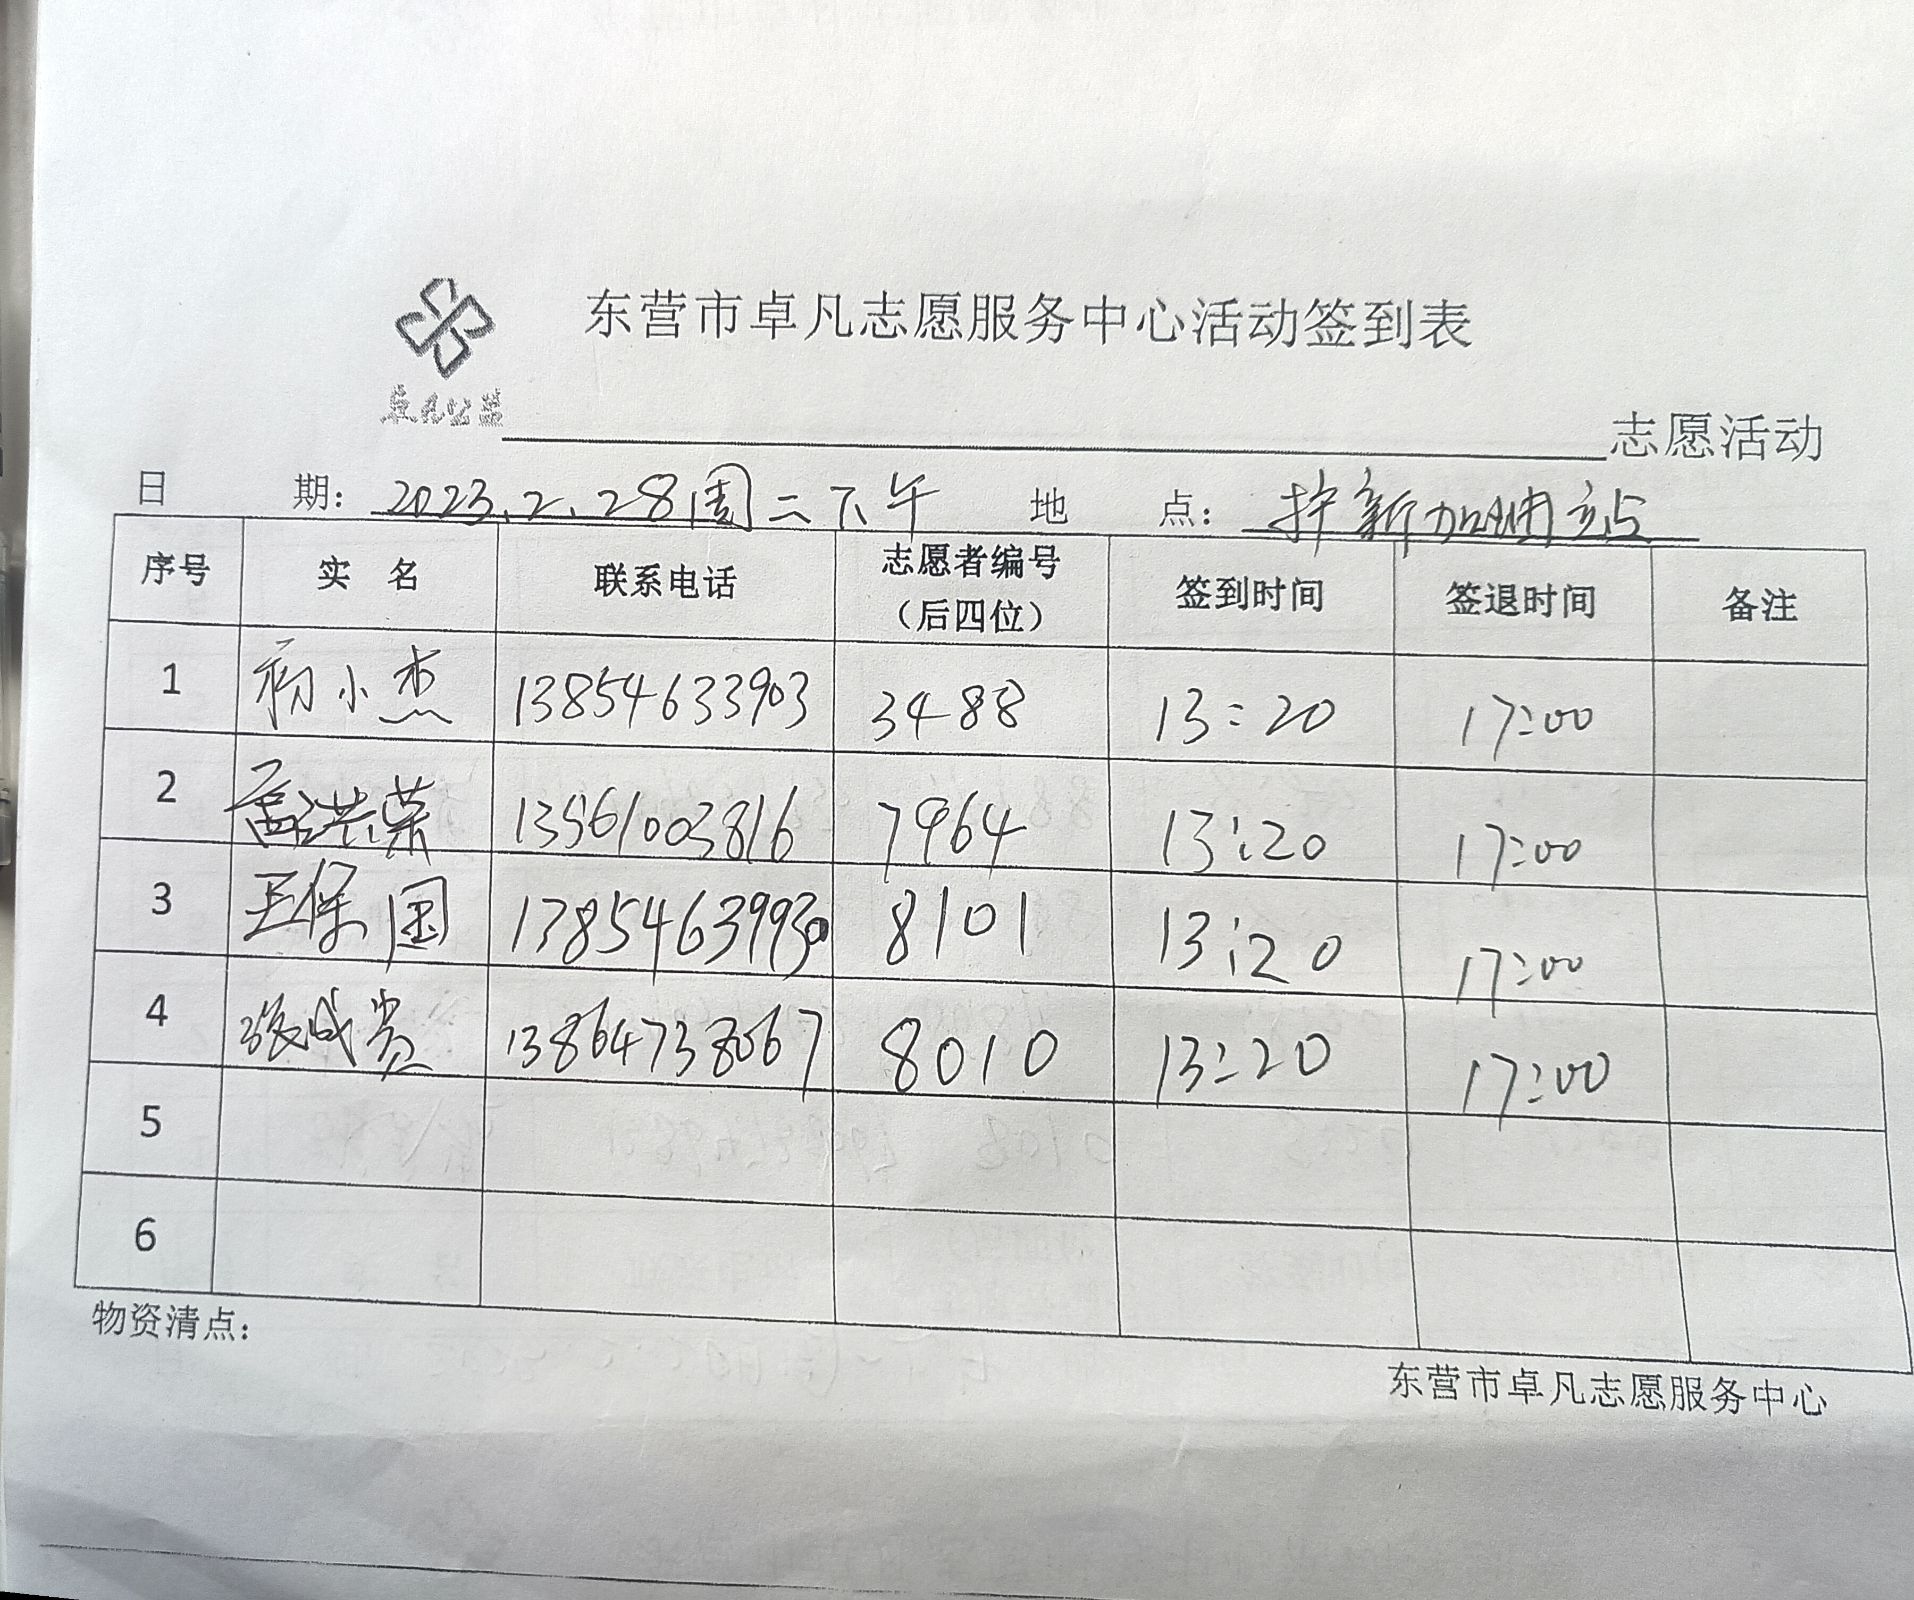 东营市卓凡志愿服务中心活动签到表
卓凡公益
志愿活动
日 期: 2023.2.28周二下午 地 点: 护新加油站
序号 实 名 联系电话 志愿者编号（后四位） 签到时间 签退时间 备注
1 初小杰 13854633903 3488 13:20 17:00
2 洪荣 13561003816 7964 13:20 17:00
3 王保国 13854639930 8101 13:20 17:00
4 张成贵 13864738067 8010 13:20 17:00
5
6
物资清点:
东营市卓凡志愿服务中心